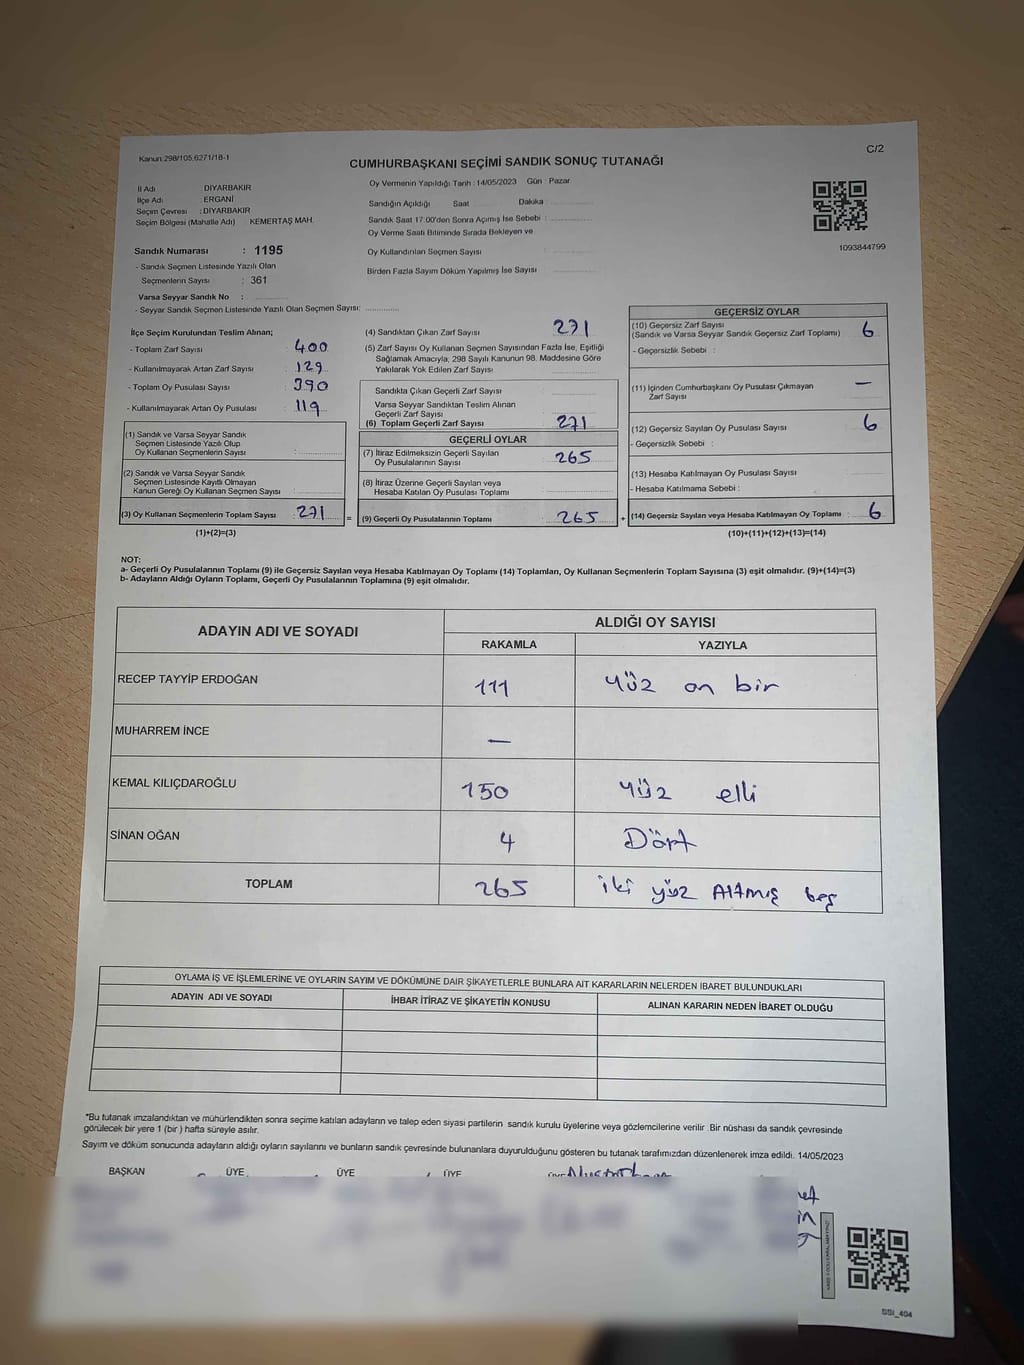 Kanun:298/105,6271/18-1
C/2
CUMHURBAŞKANI SEÇİMİ SANDIK SONUÇ TUTANAĞI
İl Adı : DİYARBAKIR
İlçe Adı : ERGANİ
Seçim Çevresi : DİYARBAKIR
Seçim Bölgesi (Mahalle Adı) : KEMERTAŞ MAH.
Sandık Numarası : 1195
- Sandık Seçmen Listesinde Yazılı Olan
Seçmenlerin Sayısı : 361
Varsa Seyyar Sandık No :
- Seyyar Sandık Seçmen Listesinde Yazılı Olan Seçmen Sayısı:
Oy Vermenin Yapıldığı Tarih : 14/05/2023 Gün : Pazar
Sandığın Açıldığı Saat Dakika
Sandık Saat 17:00'den Sonra Açımış İse Sebebi :
Oy Verme Saati Bitiminde Sırada Bekleyen ve
Oy Kullandırılan Seçmen Sayısı :
Birden Fazla Sayım Döküm Yapılmış İse Sayısı :
1093844799
İlçe Seçim Kurulundan Teslim Alınan;
- Toplam Zarf Sayısı : 400
- Kullanılmayarak Artan Zarf Sayısı : 129
- Toplam Oy Pusulası Sayısı : 390
- Kullanılmayarak Artan Oy Pusulası : 119
(1) Sandık ve Varsa Seyyar Sandık
Seçmen Listesinde Yazılı Olup
Oy Kullanan Seçmenlerin Sayısı :
(2) Sandık ve Varsa Seyyar Sandık
Seçmen Listesinde Kayıtlı Olmayan
Kanun Gereği Oy Kullanan Seçmen Sayısı :
(3) Oy Kullanan Seçmenlerin Toplam Sayısı : 271
(1)+(2)=(3)
(4) Sandıktan Çıkan Zarf Sayısı : 271
(5) Zarf Sayısı Oy Kullanan Seçmen Sayısından Fazla İse, Eşitliği
Sağlamak Amacıyla, 298 Sayılı Kanunun 98. Maddesine Göre
Yakılarak Yok Edilen Zarf Sayısı :
Sandıkta Çıkan Geçerli Zarf Sayısı :
Varsa Seyyar Sandıktan Teslim Alınan
Geçerli Zarf Sayısı :
(6) Toplam Geçerli Zarf Sayısı : 271
GEÇERLİ OYLAR
(7) İtiraz Edilmeksizin Geçerli Sayılan
Oy Pusulalarının Sayısı : 265
(8) İtiraz Üzerine Geçerli Sayılan veya
Hesaba Katılan Oy Pusulası Toplamı :
= (9) Geçerli Oy Pusulalarının Toplamı : 265
GEÇERSİZ OYLAR
(10) Geçersiz Zarf Sayısı
(Sandık ve Varsa Seyyar Sandık Geçersiz Zarf Toplamı) : 6
- Geçersizlik Sebebi :
(11) İçinden Cumhurbaşkanı Oy Pusulası Çıkmayan
Zarf Sayısı : —
(12) Geçersiz Sayılan Oy Pusulası Sayısı : 6
- Geçersizlik Sebebi :
(13) Hesaba Katılmayan Oy Pusulası Sayısı :
- Hesaba Katılmama Sebebi :
+ (14) Geçersiz Sayılan veya Hesaba Katılmayan Oy Toplamı : 6
(10)+(11)+(12)+(13)=(14)
NOT:
a- Geçerli Oy Pusulalarının Toplamı (9) ile Geçersiz Sayılan veya Hesaba Katılmayan Oy Toplamı (14) Toplamları, Oy Kullanan Seçmenlerin Toplam Sayısına (3) eşit olmalıdır. (9)+(14)=(3)
b- Adayların Aldığı Oyların Toplamı, Geçerli Oy Pusulalarının Toplamına (9) eşit olmalıdır.
ADAYIN ADI VE SOYADI
ALDIĞI OY SAYISI
RAKAMLA YAZIYLA
RECEP TAYYİP ERDOĞAN 111 Yüz on bir
MUHARREM İNCE —
KEMAL KILIÇDAROĞLU 150 Yüz elli
SİNAN OĞAN 4 Dört
TOPLAM 265 iki yüz Altmış beş
OYLAMA İŞ VE İŞLEMLERİNE VE OYLARIN SAYIM VE DÖKÜMÜNE DAİR ŞİKAYETLERLE BUNLARA AİT KARARLARIN NELERDEN İBARET BULUNDUKLARI
ADAYIN ADI VE SOYADI İHBAR İTİRAZ VE ŞİKAYETİN KONUSU ALINAN KARARIN NEDEN İBARET OLDUĞU
"Bu tutanak imzalandıktan ve mühürlendikten sonra seçime katılan adayların ve talep eden siyasi partilerin sandık kurulu üyelerine veya gözlemcilerine verilir. Bir nüshası da sandık çevresinde
görülecek bir yere 1 (bir) hafta süreyle asılır.
Sayım ve döküm sonucunda adayların aldığı oyların sayılarını ve bunların sandık çevresinde bulunanlara duyurulduğunu gösteren bu tutanak tarafımızdan düzenlenerek imza edildi. 14/05/2023
BAŞKAN ÜYE ÜYE ÜYE
SSI_404